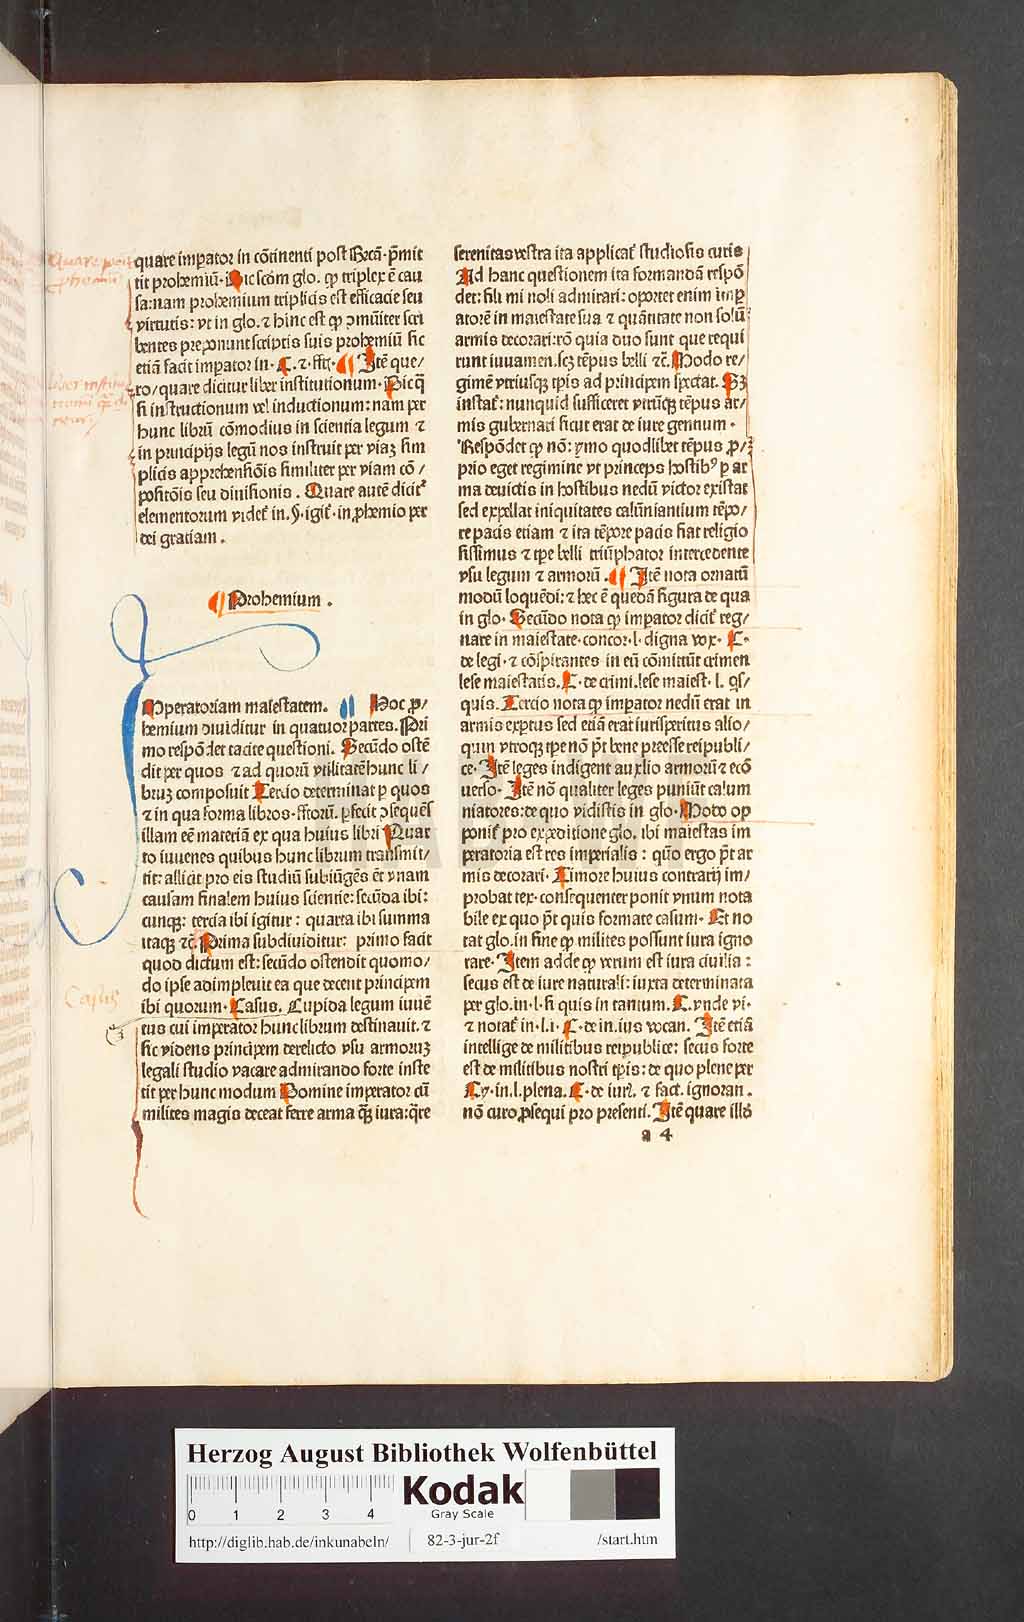 quare imperator in cōtinenti post Grecā p̄mit
tit prohemiū. Dic scđm glo. ꝙ triplex ē cau
sa: nam prohemium triplicis est efficacie seu
virtutis: vt in glo. ⁊ hinc est ꝙ ↄmūiter scri
bentes preponunt scriptis suis prohemiū sic
etiā facit impator in. C. ⁊. ffis. ¶ Itē que/
ro/ quare dicitur liber institutionum. Dic q̄
si instructionum vel inductionum: nam per
hunc librū cōmodius in scientia legum ⁊
in principijs legū nos instruit per viaȝ sim
plicis apprehensiōis similiter per viam cō/
positōis seu diuisionis. Quare autē dicit̄
elementorum videt̄ in. §. igit̄. in ꝓhemio per
dei gratiam.
¶ Prohemium.
IMperatoriam maiestatem. ¶ Hoc ꝓ/
hemium diuiditur in quatuor partes. Pri
mo respōdet tacite questioni. Secūdo ostē
dit per quos ⁊ ad quorū vtilitatē hunc li/
bruȝ composuit Tercio determinat ꝑ quos
⁊ in qua forma libros. ffitorū. ꝑfecit ꝓsequēs
illam eē materiā ex qua huius libri Quar
to iuuenes quibus hunc librum transmit/
tit: allicit pro eis studiū subiūgēs eēt vnam
causam finalem huius scientie: secūda ibi:
cunqȝ: tercia ibi igitur: quarta ibi summa
itaqȝ ⁊c̄. Prima subdiuiditur: primo facit
quod dictum est: secūdo ostendit quomo/
do ipse adimpleuit ea que decent principem
ibi quorum. Casus. Cupida legum iuuē
tus cui imperator hunc librum destinauit. ⁊
sic videns principem derelicto vsu armorūȝ
legali studio vacare admirando forte inste
tit per hunc modum Domine imperator cū
milites magis deceat ferre arma q̄ȝ iura: q̄re
serenitas vestra ita applicat̄ studiosis curis
Ad hanc questionem ita formandā respō
det: fili mi noli admirari: oportet enim imꝑ
atorē in maiestate sua ⁊ quātitate non solū
armis decorari: rō quia duo sunt que requi
runt iuuamen. scȝ tēpus belli ⁊c̄. Modo re/
gimē vtriusqȝ tp̄is ad principem spectat. Sȝ
instat̄: nunquid sufficeret vtrūqȝ tēpus ar/
mis gubernari sicut erat de iure gentium.
Respōdet ꝙ nō: ymo quodlibet tēpus ꝓ/
prio eget regimine vt princeps hostibꝰ ꝑ ar
ma deuictis in hostibus nedū victor existat
sed expellat iniquitates calūniantium tēpo/
re pacis etiam ⁊ ita tēpore pacis fiat religio
sissimus ⁊ tp̄e belli triūphator intercedente
vsu legum ⁊ armorū. ¶ Itē nota ornatū
modū loquēdi: ⁊ hec ē quedā figura de qua
in glo. Secūdo nota ꝙ imperator dicit̄ reg/
nare in maiestate. concor. l. digna vox. C.
de legi. ⁊ cōspirantes in eū cōmittūt crimen
lese maiestatis. C. de crimi. lese maiest. l. qs/
quis. Tercio nota ꝙ imperator nedū erat in
armis expertus sed etiā erat iurisperitus alio/
quin vtroqȝ tp̄e nō p̄t bene preesse reipubli/
ce. Itē leges indigent auxilio armorū ⁊ ecō
uerso. Itē nō qualiter leges puniūt calum
niatores: de quo vidistis in glo. Modo op
ponit̄ pro expeditione glo. ibi maiestas im
peratoria est res imperialis: quō ergo p̄t ar
mis decorari. Timore huius contrarij im/
probat tex. consequenter ponit vnum nota
bile ex quo p̄t quis formare casum. Et no
tat glo. in fine ꝙ milites possunt iura igno
rare. Item adde ꝙ verum est iura ciuilia:
secus est de iure naturali: iuxta determinata
per glo. in. l. si quis in tantum. C. vnde vi.
⁊ notat̄ in. l. i. C. de in. ius vocan. Itē etiā
intellige de militibus reipublice: secus forte
est de militibus nostri tp̄is: de quo plene per
Cy. in. l. plena. C. de iur. ⁊ fact. ignoran.
nō curo ꝓsequi pro presenti. Itē quare illō
a 4
Casus
Herzog August Bibliothek Wolfenbüttel
0 1 2 3 4
Kodak
Gray Scale
http://diglib.hab.de/inkunabeln/ 82-3-jur-2f /start.htm